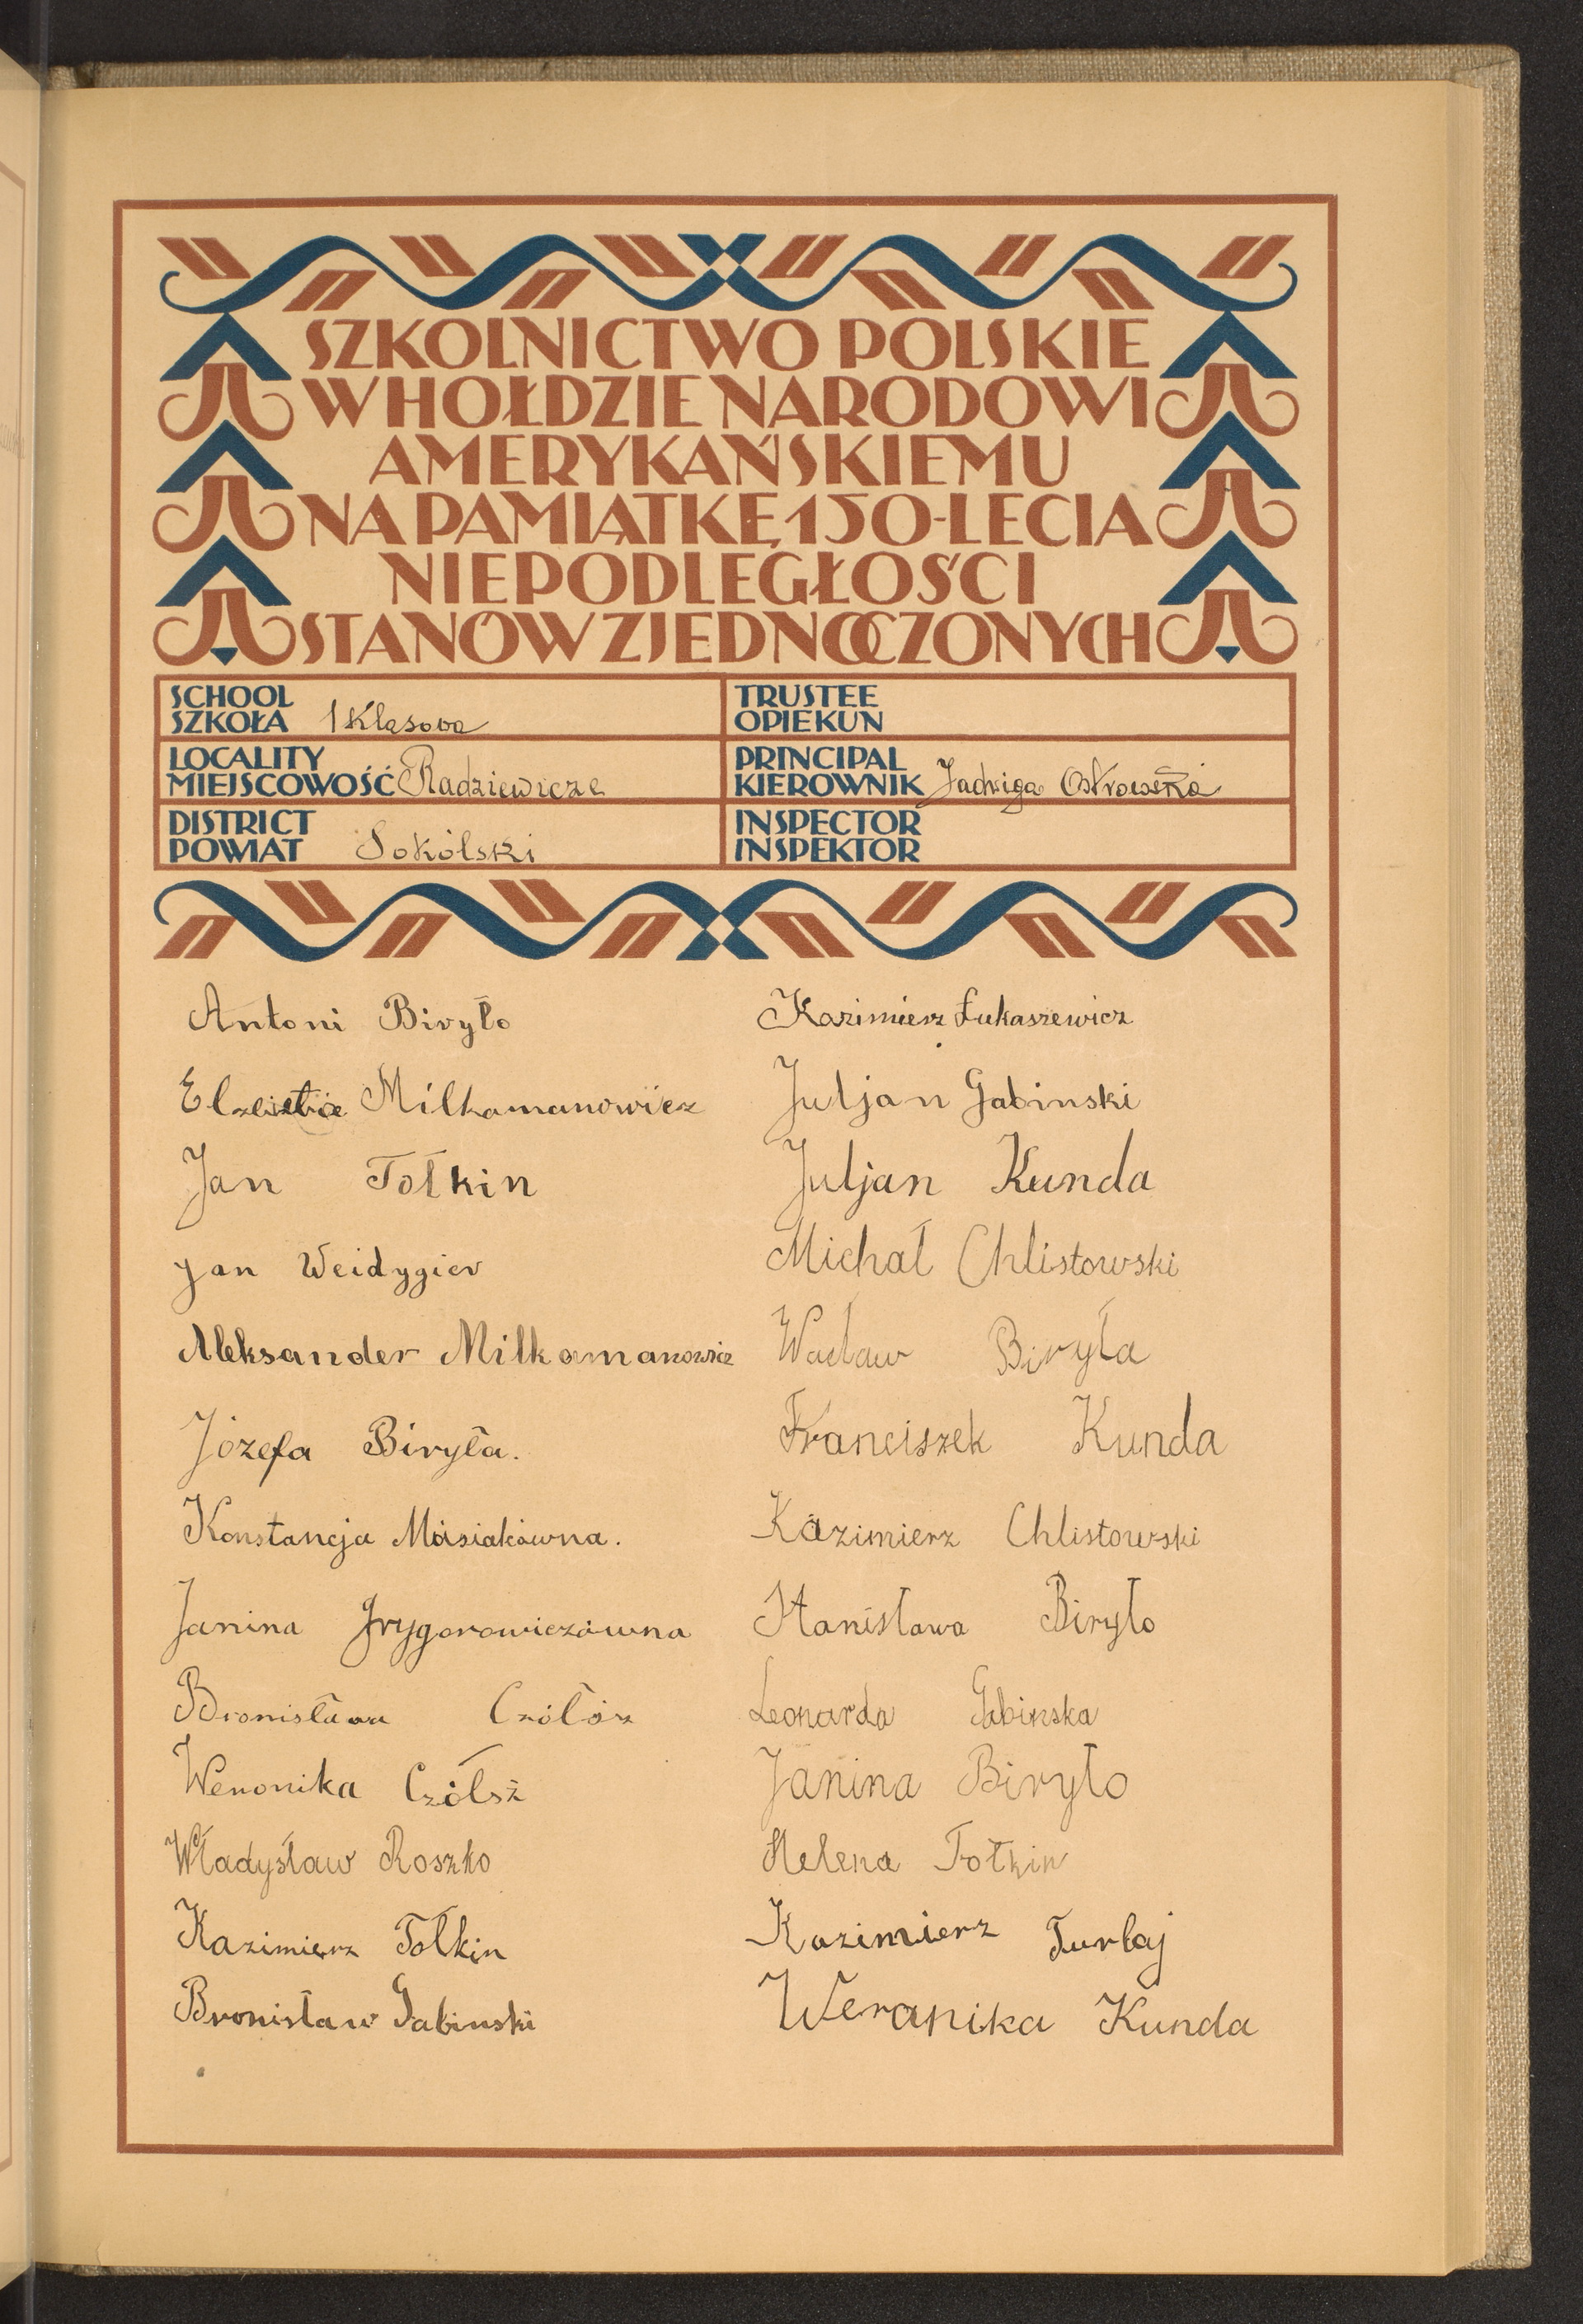 SZKOLNICTWO POLSKIE
W HOŁDZIE NARODOWI
AMERYKAŃSKIEMU
NA PAMIĄTKĘ 150-LECIA
NIEPODLEGŁOŚCI
STANÓW ZJEDNOCZONYCH
SCHOOL
SZKOŁA 1 Klasowa
TRUSTEE
OPIEKUN
LOCALITY
MIEJSCOWOŚĆ Radziewicze
PRINCIPAL
KIEROWNIK Jadwiga
DISTRICT
POWIAT Sokólski
INSPECTOR
INSPEKTOR
Antoni Biryło
Milkamanowicz
Jan Tołkin
Jan Weidygier
Aleksander Milkamanowicz
Józefa Biryła.
Konstancja Misiakówna.
Janina Grygorowiczówna
Bronisława Czółósz
Weronika Czółsz
Władysław Roszko
Kazimierz Tołkin
Bronisław Gabinski
Kazimierz Łukaszewicz
Juljan Gabinski
Juljan Kunda
Michał Chlistowski
Wacław Biryła
Franciszek Kunda
Kazimierz Chlistowski
Stanisława Biryło
Leonarda Gabinska
Janina Biryło
Helena Tołkin
Kazimierz Turłaj
Weranika Kunda